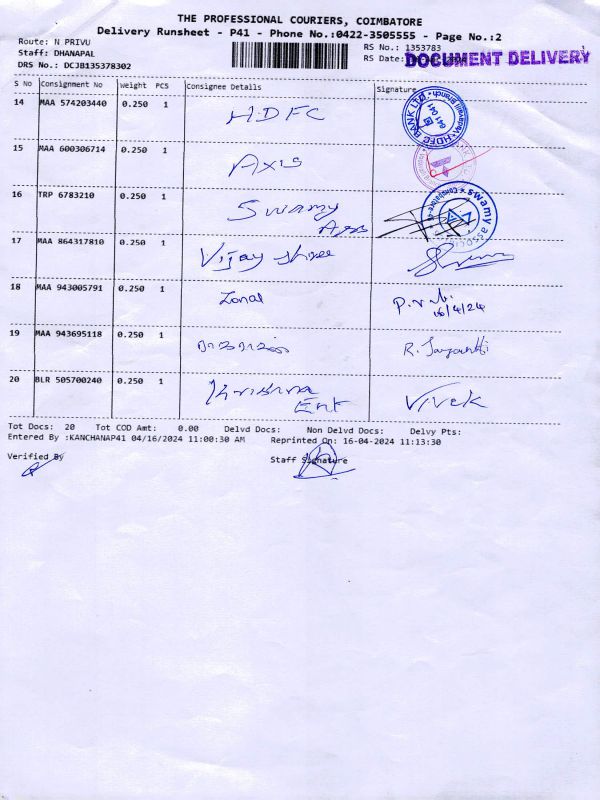 THE PROFESSIONAL COURIERS, COIMBATORE
Delivery Runsheet - P41 - Phone No.:0422-3505555 - Page No.:2
Route: N PRIVU
Staff: DHANAPAL
DRS No.: DCJB135378302
RS No.: 1353783
RS Date:
DOCUMENT DELIVERY
S No Consignment No Weight PCS Consignee Details Signature
14 MAA 574203440 0.250 1 HDFC
HDFC BANK LTD.
641 041
15 MAA 600306714 0.250 1 Axis
16 TRP 6783210 0.250 1 Swamy
Asso
swamy associates
Coimbatore
17 MAA 864317810 0.250 1 Vijay shree
18 MAA 943005791 0.250 1 Zonal
16/4/24
19 MAA 943695118 0.250 1 R. Jayanthi
20 BLR 505700240 0.250 1 Krishna
Ent Vivek
Tot Docs: 20 Tot COD Amt: 0.00 Delvd Docs: Non Delvd Docs: Delvy Pts:
Entered By :KANCHANAP41 04/16/2024 11:00:30 AM Reprinted On: 16-04-2024 11:13:30
Verified By Staff Signature